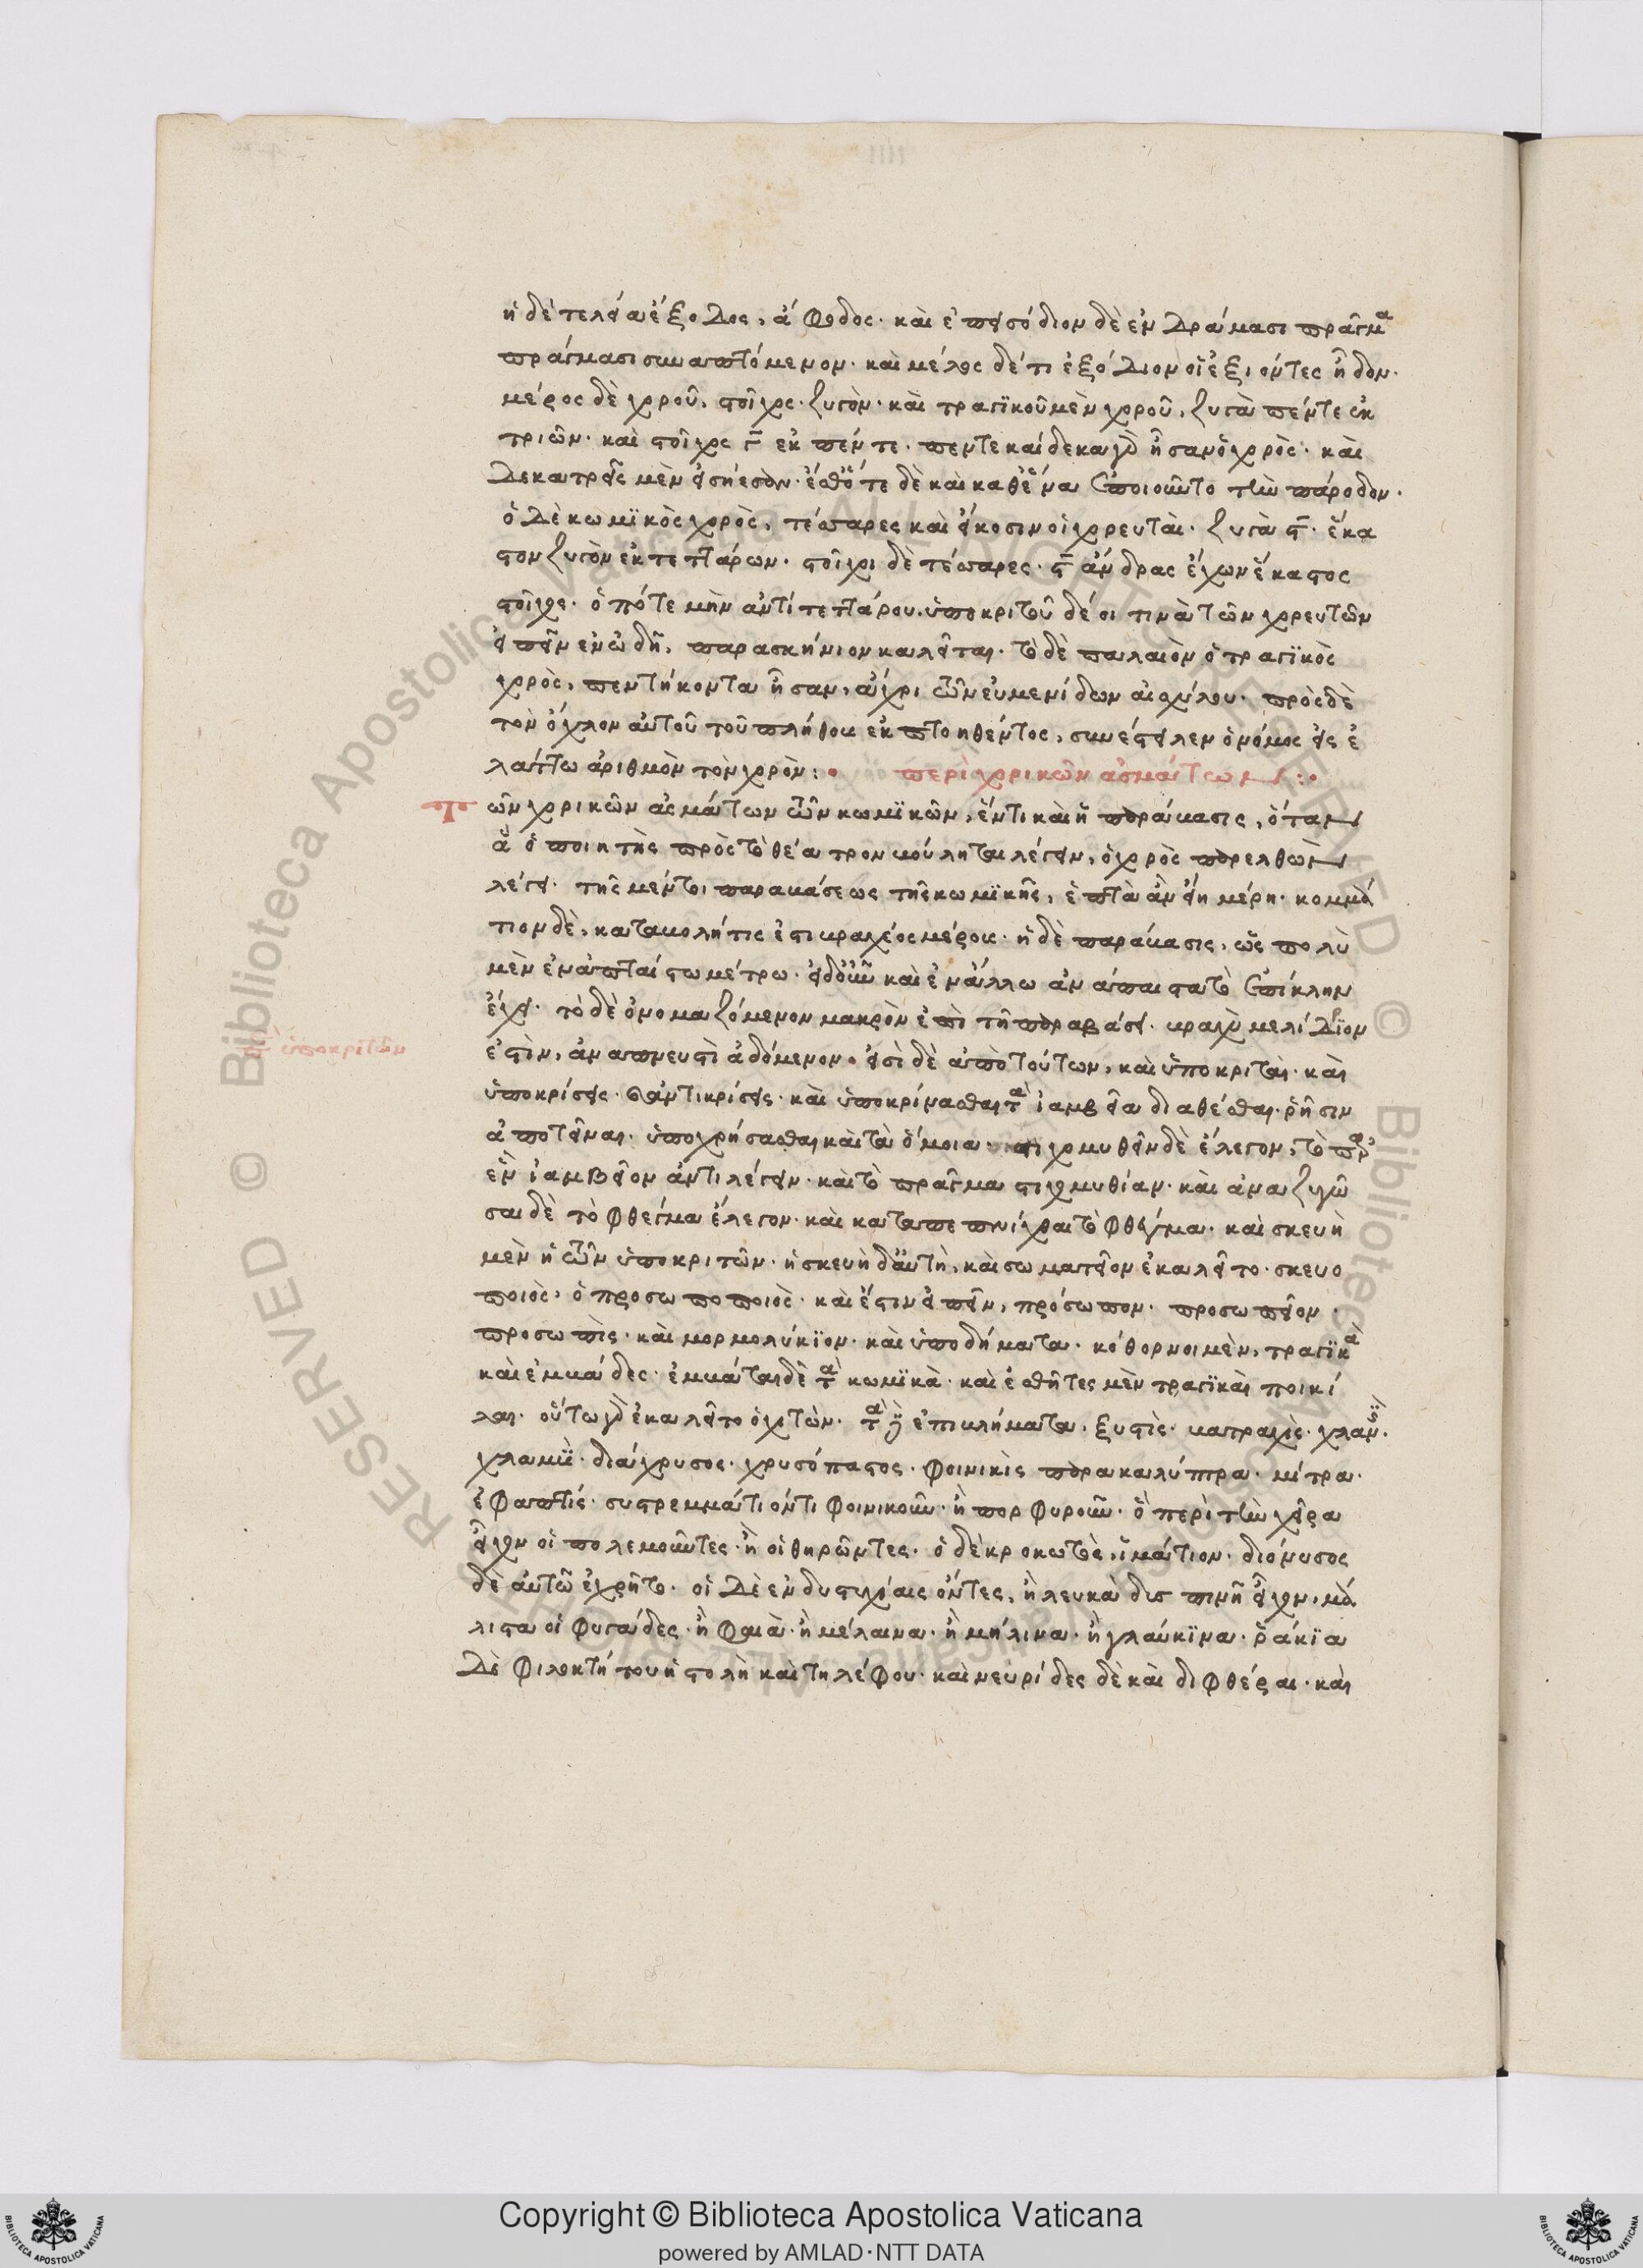 ἡ δὲ τελεία ἔξοδος, ἄφοδος· καὶ ἐπεισόδιον δὲ ἐν δράμασι πρᾶγμα
πράγμασι συναπτόμενον· καὶ μέλος δέ τι ἐξόδιον οἱ ἐξιόντες ᾖδον·
μέρος δὲ χοροῦ, στοῖχος· ζυγόν· καὶ τραγϊκοῦ μὲν χοροῦ, ζυγὰ πέντε ἐκ
τριῶν· καὶ στοῖχοι γ ἐκ πέντε· πεντεκαίδεκα γὰρ ἦσαν ὁ χορός· καὶ
δεκατρεῖς μὲν εἰσήεσαν· ἔσθ' ὅτε δὲ καὶ καθ' ἕνα ἐποιοῦντο τὴν πάροδον·
ὁ δὲ κωμϊκὸς χορὸς, τέσσαρες καὶ εἴκοσιν οἱ χορευταί· ζυγὰ ς· ἕκα
στον ζυγὸν ἐκ τεττάρων· στοῖχοι δὲ τέσσαρες· ς ἄνδρας ἔχων ἕκαστος
στοῖχος· ὁπότε μὴν ἀντὶ τετάρτου ὑποκριτοῦ δέοι τινὰ τῶν χορευτῶν
εἰπεῖν ἐν ᾠδῇ, παρασκήνιον καλεῖται· τὸ δὲ παλαιὸν ὁ τραγϊκὸς
χορὸς, πεντήκοντα ἦσαν, ἄχρι τῶν εὐμενίδων αἰσχύλου· πρὸς δὲ
τὸν ὄχλον αὐτοῦ τοῦ πλήθους ἐκπτοηθέντος, συνέστειλεν ὁ νόμος εἰς ἐ
λάττω ἀριθμὸν τὸν χορόν: περὶ χορικῶν ἀσμάτων:
Τῶν χορικῶν ἀσμάτων τῶν κωμϊκῶν, ἕν τι καὶ ἡ παράβασις, ὅταν
ἃ ὁ ποιητὴς πρὸς τὸ θέατρον βούληται λέγειν, ὁ χορὸς παρελθὼν
λέγει· τῆς μέντοι παραβάσεως τῆς κωμϊκῆς, ἑπτὰ ἂν εἴη μέρη· κομμά
τιον δὲ, καταβολή τίς ἐστι βραχέος μέρους· ἡ δὲ παράβασις, ὡς πολὺ
μὲν ἐν ἀναπαίστω μέτρω· εἰ δ' οὖν καὶ ἐν ἄλλω ἀνάπαιστα τὸ ἐπίκλην
ἔχει· τὸ δὲ ὀνομαζόμενον μακρὸν ἐπὶ τῇ παραβάσει· βραχὺ μελίδϊον
ἐστὶν, ἀπνευστὶ ἀδόμενον· εἰσὶ δὲ ἀπὸ τούτων, καὶ ὑποκριταί· καὶ
π ὑποκριτῶν
ὑποκρίσεις· ἀντικρίσεις· καὶ ὑποκρίνασθαι τὰ ἰαμβεῖα διαθέσθαι· ῥῆσιν
ἀποτεῖναι· ὑποχρήσασθαι καὶ τὰ ὅμοια· στιχομυθεῖν δὲ ἔλεγον, τὸ παρ'
ἓν ἰαμβεῖον ἀντιλέγειν· καὶ τὸ πρᾶγμα στιχομυθίαν· καὶ ἀναζυγῶ
σαι δὲ τὸ φθέγμα ἔλεγον· καὶ καταπεπνίχθαι τὸ φθέγμα· καὶ σκευὴ
μὲν ἡ τῶν ὑποκριτῶν· ἡ σκευὴ δ' αὐτὴ, καὶ σωματεῖον ἐκαλεῖτο· σκευο
ποιὸς, ὁ προσωποποιός· καὶ ἔστιν εἰπεῖν, πρόσωπον· προσωπεῖον·
προσωπίς· καὶ μορμολύκϊον· καὶ ὑποδήματα· κόθορνοι μὲν, τραγϊκὰ
καὶ ἐμβάδες· ἐμβάται δὲ τὰ κωμϊκά· καὶ ἐσθῆτες μὲν τραγϊκαὶ ποικί
λαι· οὕτω γὰρ ἐκαλεῖτο ὁ χιτών· τὰ δ' ἐπιβλήματα, ξυστίς· βατραχίς· χλανίς·
χλαμύς· διάχρυσος· χρυσόπαστος· φοινικίς παρακαλύπτρα· μίτρα·
ἐφαπτίς· συστρεμμάτιόν τι φοινικοῦν· ἢ πορφυροῦν· ὃ περὶ τὴν χεῖρα
εἶχον οἱ πολεμοῦντες· ἢ οἱ θηρῶντες· ὁ δὲ κροκωτὸς, ἱμάτιον· διόνυσος
δὲ αὐτῶ ἐχρῆτο· οἱ δὲ ἐν δυστυχίαις ὄντες, ἢ λευκὰ δυσπινῆ εἶχον, μά
λιστα οἱ φυγάδες· ἢ φαιά· ἢ μέλαινα· ἢ μήλινα· ἢ γλαύκϊνα· ῥάκϊα
δὲ φιλοκτήτου ἡ στολὴ καὶ τηλέφου· καὶ νευρίδες δὲ καὶ διφθέραι· καὶ
RESERVED © Biblioteca Apostolica Vaticana ALL RIGHTS RESERVED © Biblioteca Apostolica Vaticana ALL RIGHTS
Copyright © Biblioteca Apostolica Vaticana
powered by AMLAD·NTT DATA
BIBLIOTECA APOSTOLICA VATICANA
BIBLIOTECA APOSTOLICA VATICANA